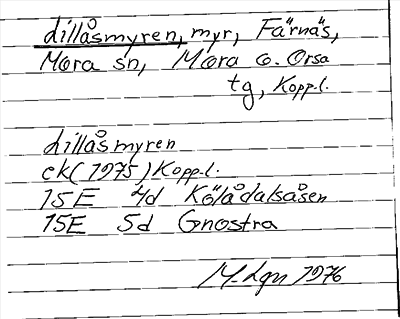 Lillåsmyren, myr, Färnäs,
Mora sn, Mora o. Orsa
tg, Kopp.l.
Lillåsmyren
ek (1975) Kopp.l.
15E 4d Kölådalsåsen
15E 5d Gnostra
M-Lgn 1976